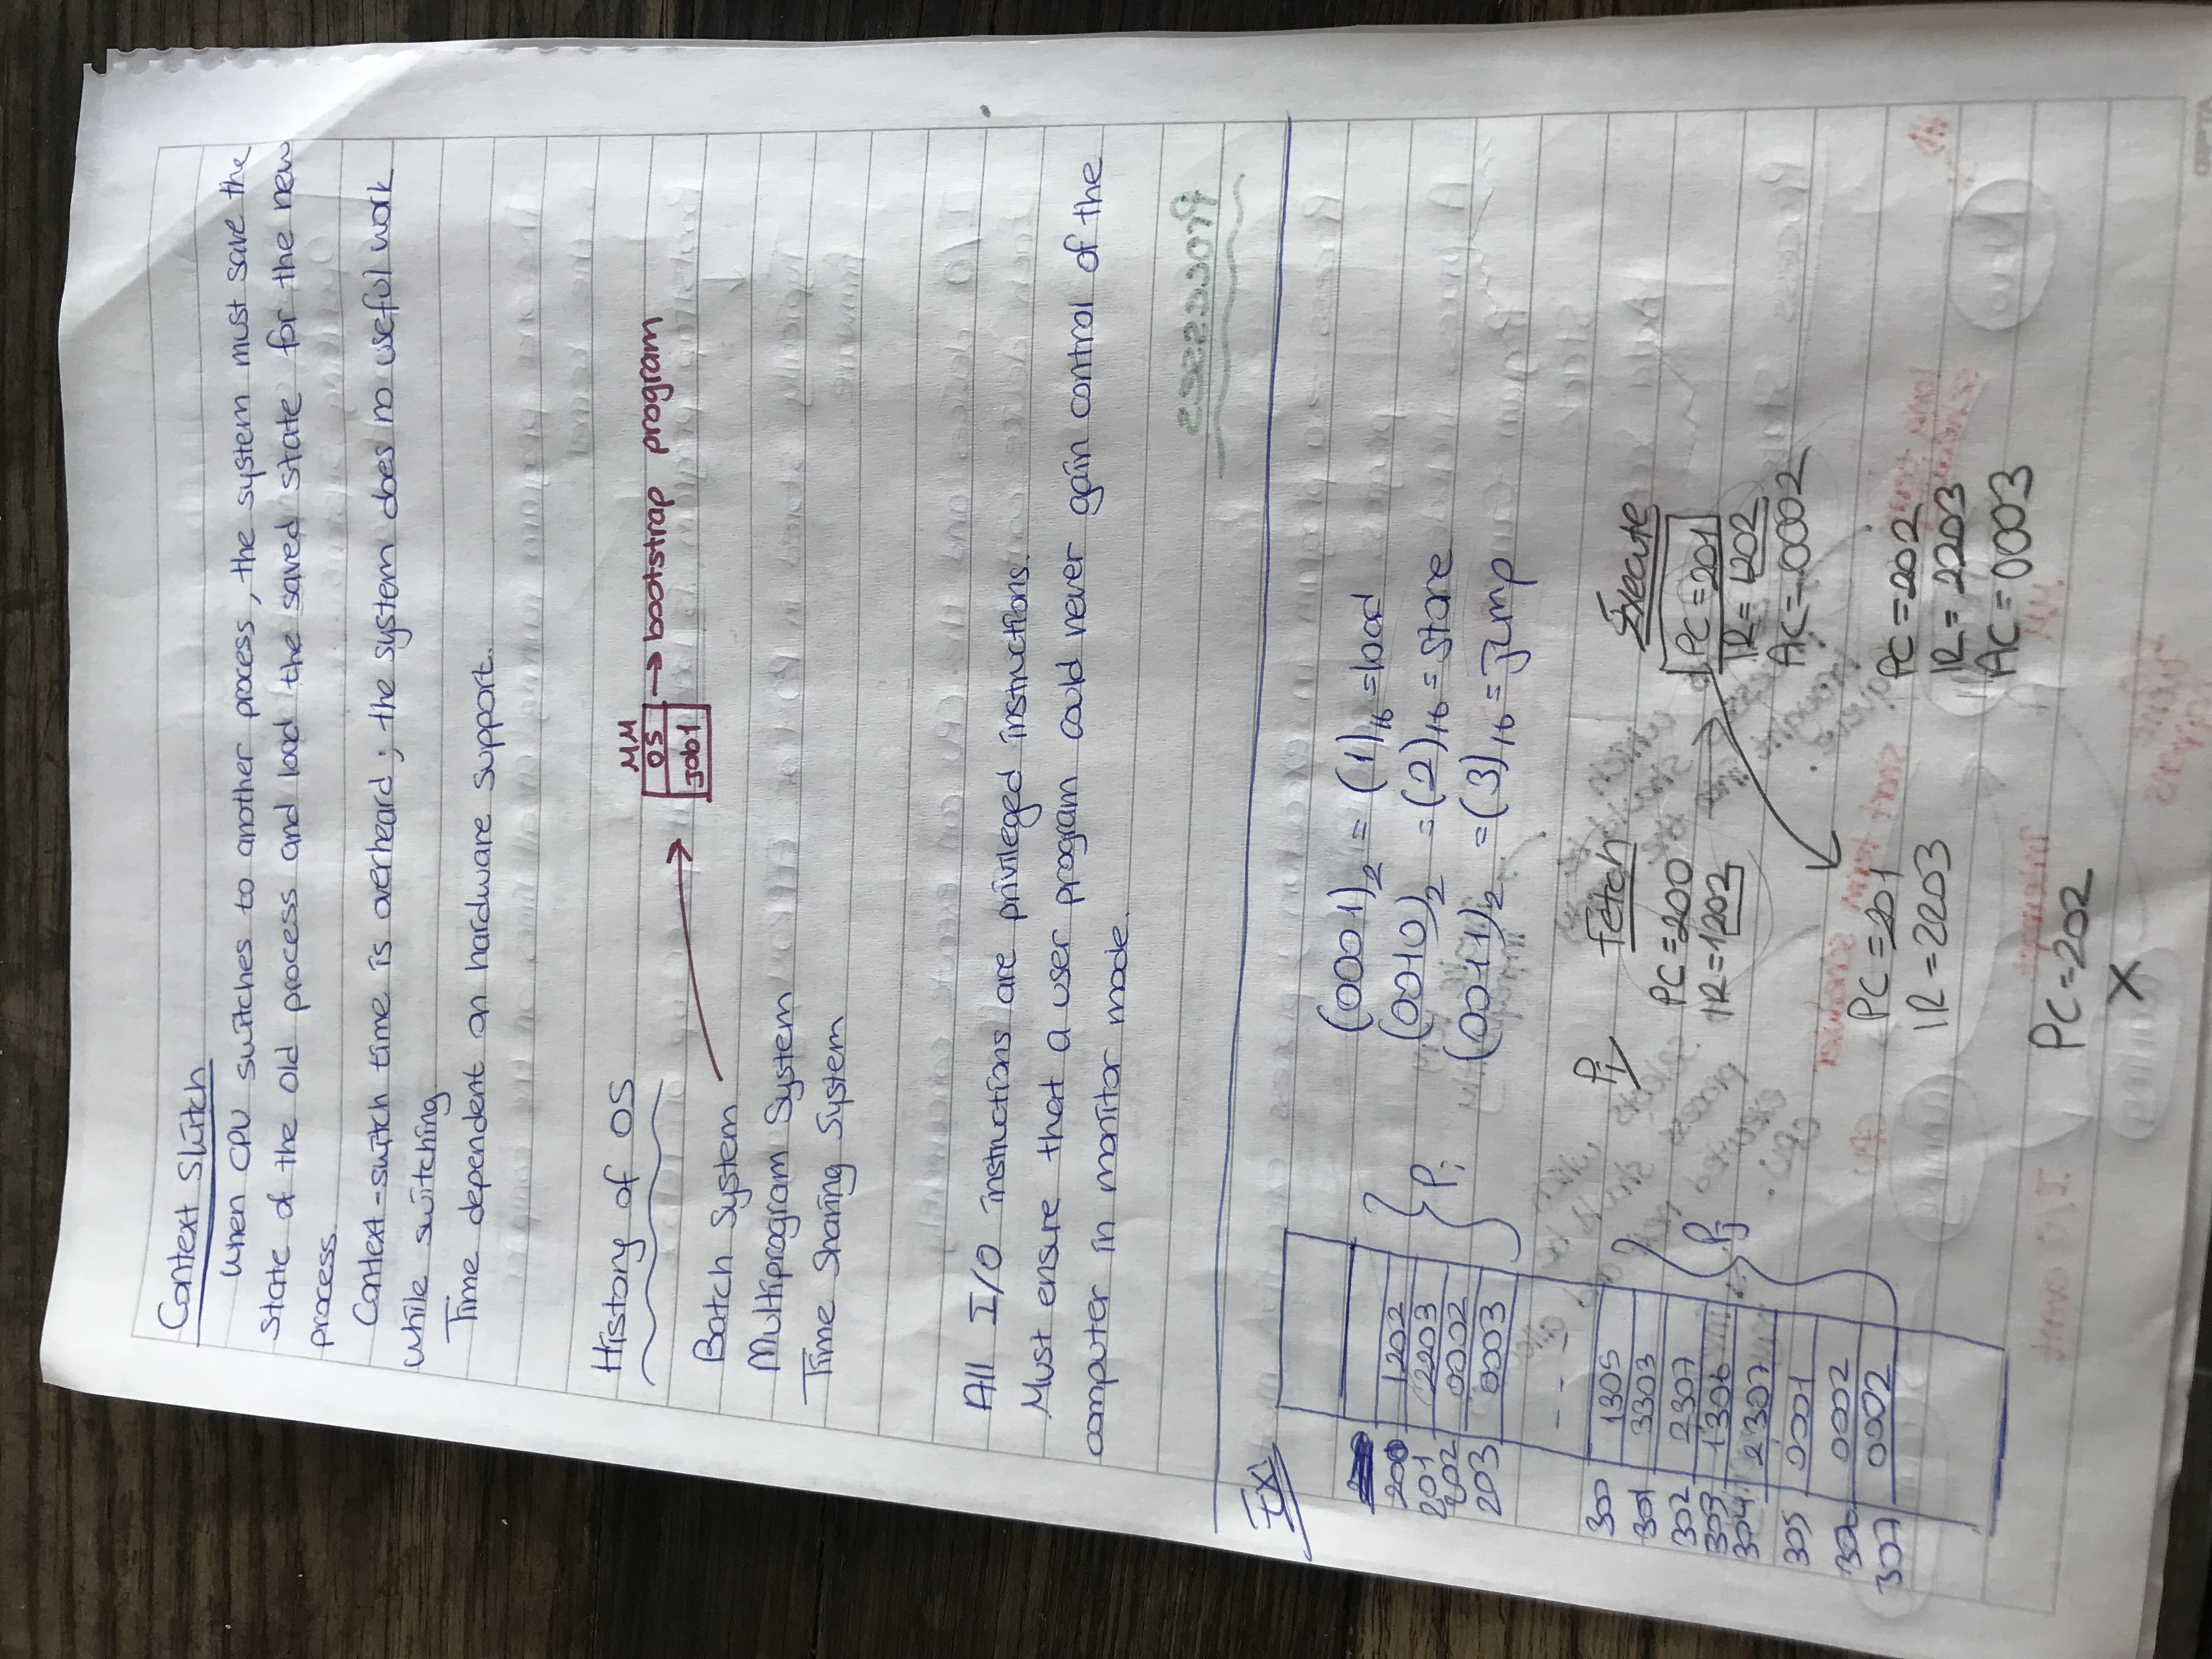 Context Switch
When CPU switches to another process, the system must save the
state of the old process and load the saved state for the new
process.
Context-switch time is overheard; the system does no useful work
while switching.
Time dependent on hardware support.
History of OS
MM
OS → bootstrap program
Job1
Batch System
Multiprogram System
Time Sharing System
All I/O instructions are privileged instructions.
Must ensure that a user program could never gain control of the
computer in monitor mode.
Processes
Ex:
200 1202
201 2203
202 0002
203 0003
Pi
(0001)2 = (1)16 = load
(0010)2 = (2)16 = store
(0011)2 = (3)16 = jump
- - -
300 1305
301 3303
302 2307
303 1306
304 2307
305 0001
306 0002
307 0002
Pj
Pi Fetch Execute
PC=200 PC=201
IR=1202 IR=1202
AC=0002
PC=201 PC=202
IR=2203 IR=2203
AC=0003
PC=202
X